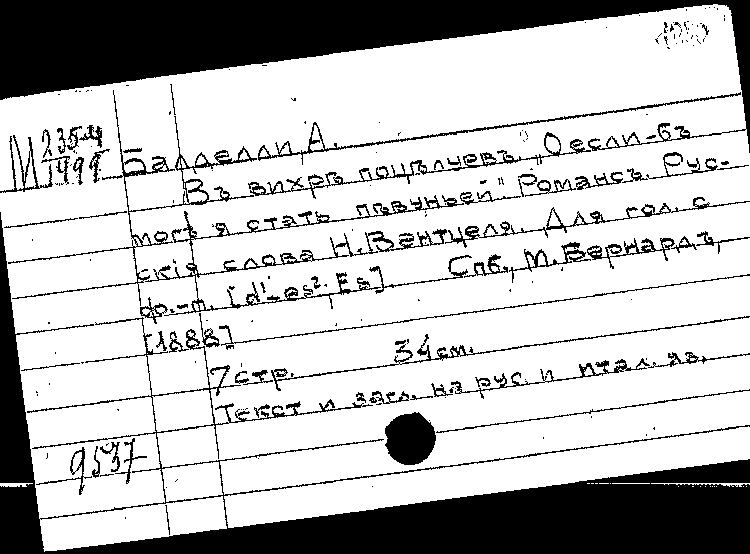 М 235-4
1499
Балделли, А.
Въ вихрѣ поцѣлуевъ. „О если-бъ
могъ я стать пѣвуньей". Романсъ. Рус-
скія слова Н. Вентцеля. Для гол. с
фо.-п. [d¹-es². Es]. Спб., М. Бернардъ,
[1888]
7 стр. 34 см.
Текст и загл. на рус. и итал. яз.
9537